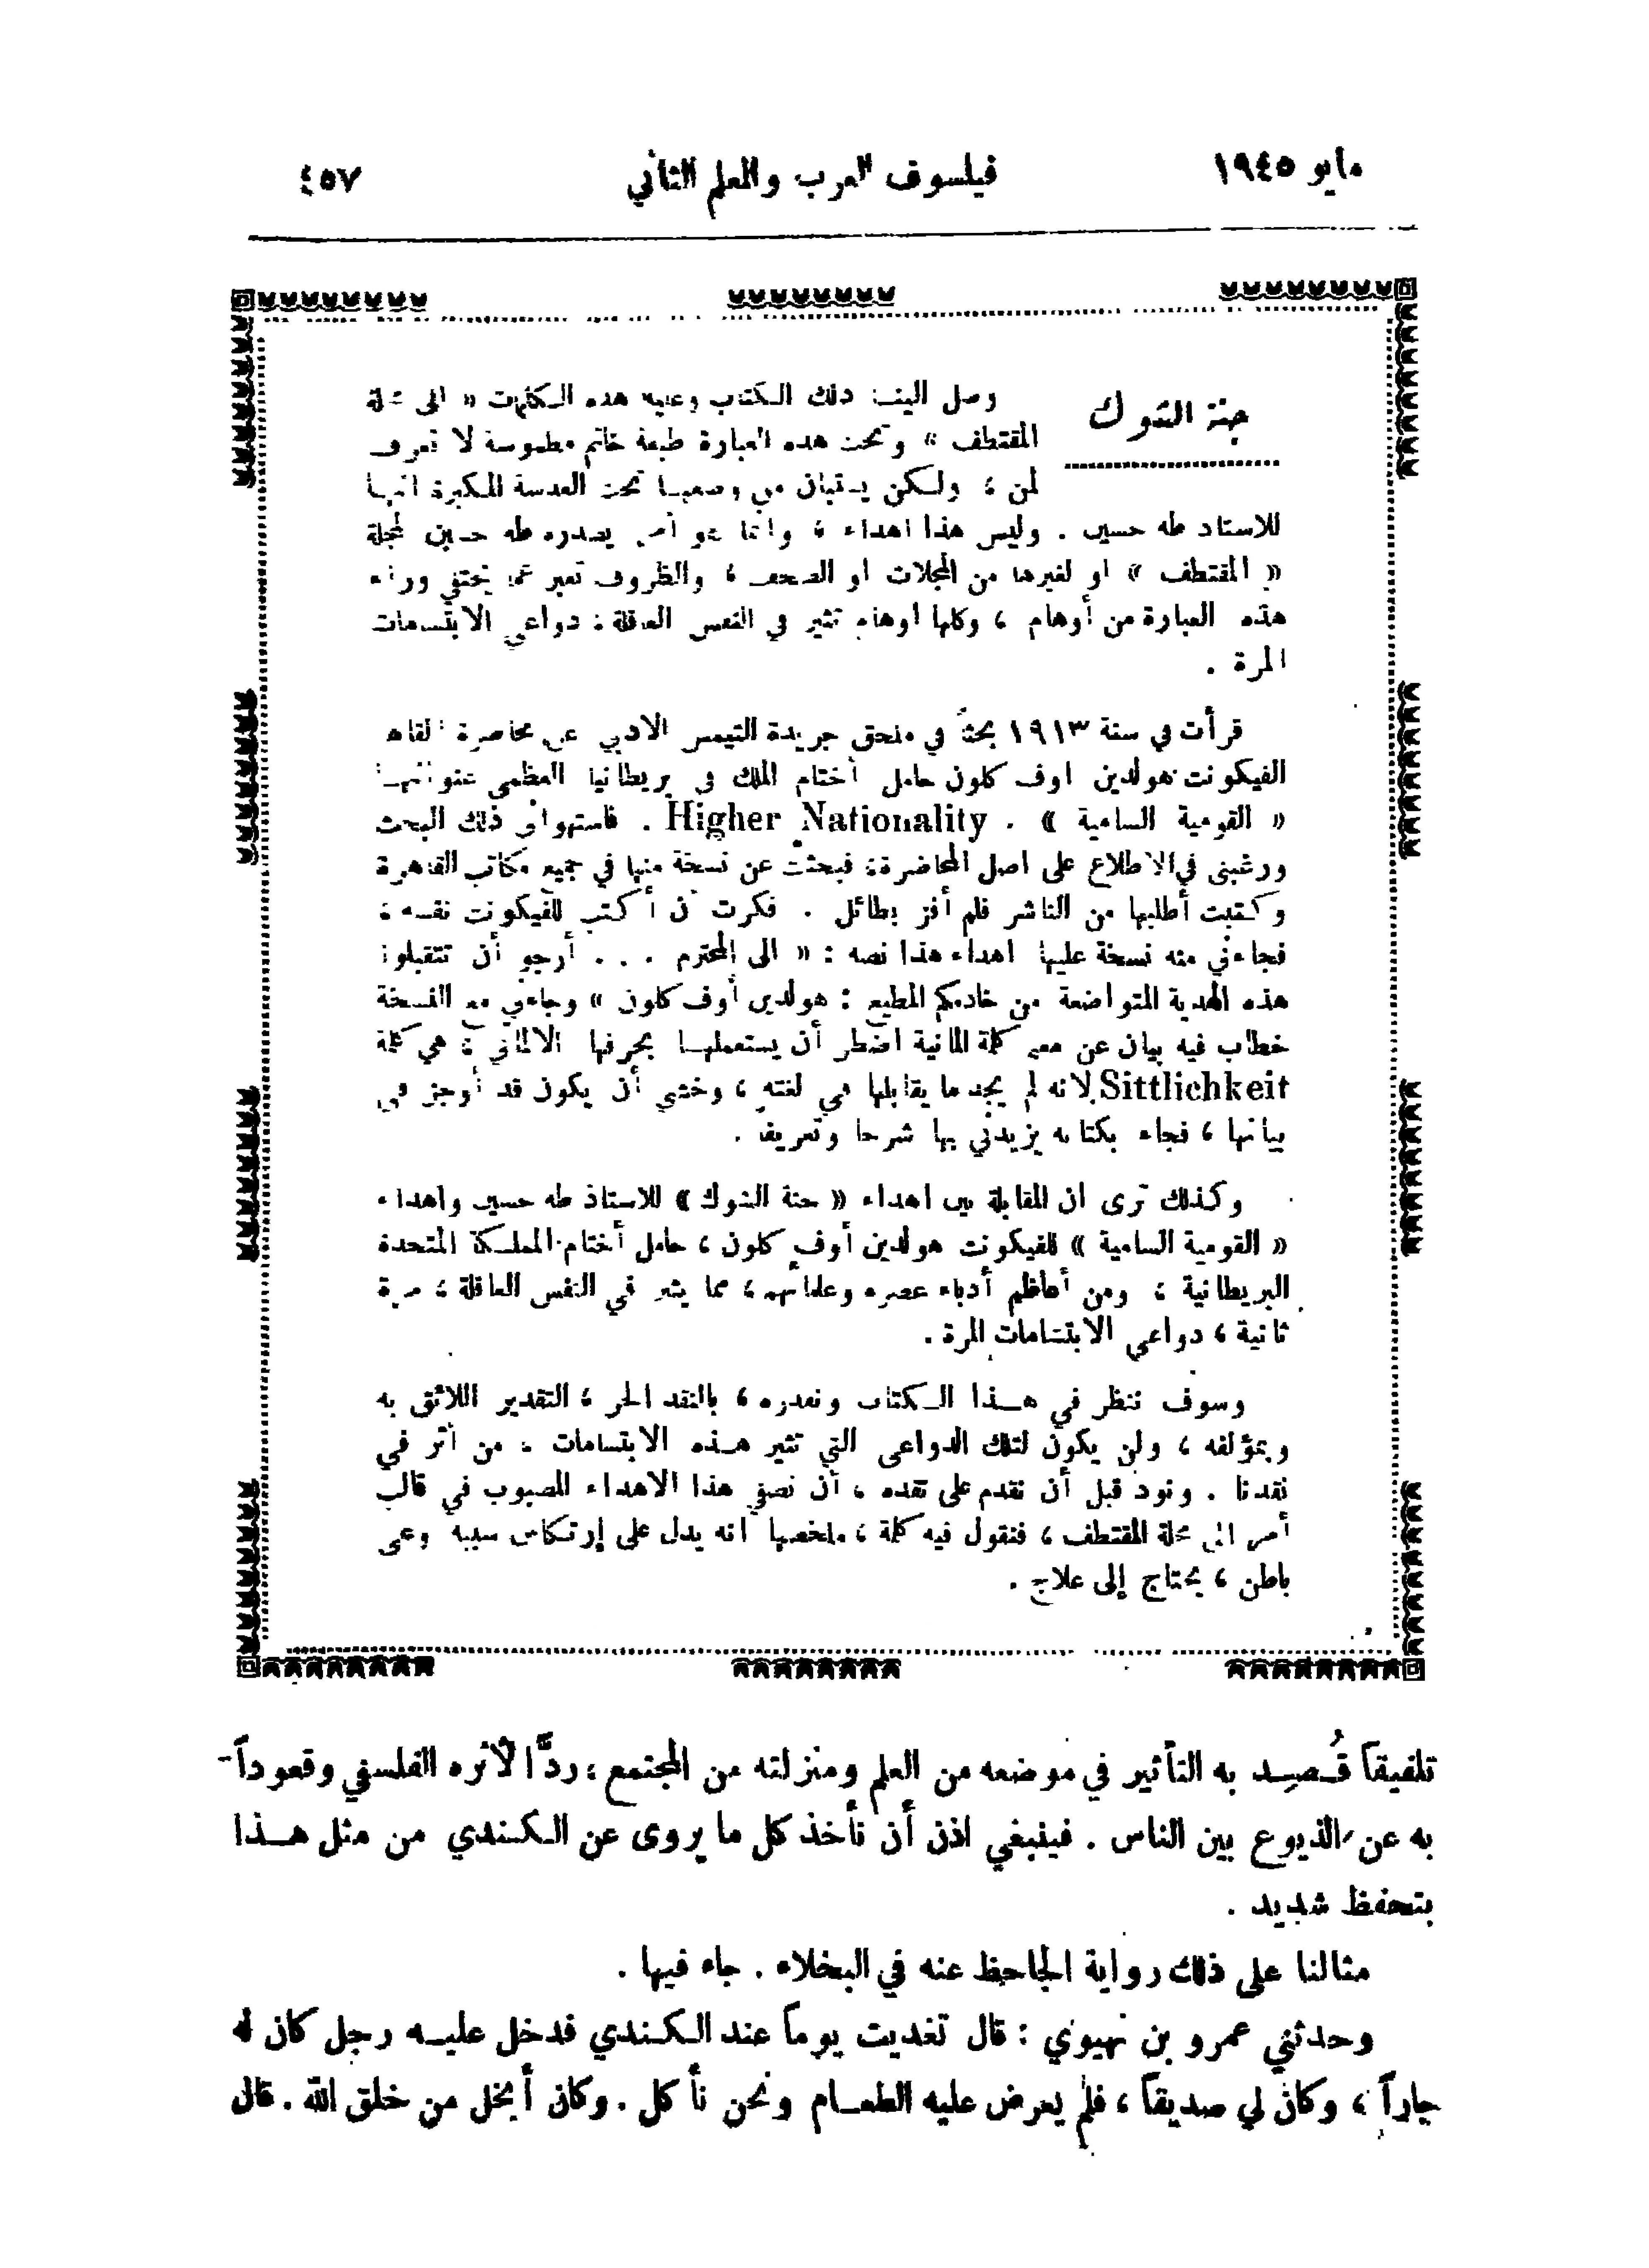 مايو ١٩٤٥
فيلسوف العرب والمعلم الثاني
٤٥٧
جنة الشوك
وصل الينا ذلك الكتاب وعليه هذه الكلمات « الى مجلة
المقتطف » وتحت هذه العبارة طبعة خاتم مطموسة لا تعرف
لمن ، ولكن يستبان من وضعها تحت العدسة المكبرة انها
للاستاذ طه حسين . وليس هذا اهداء ، وانما هو أمر يصدره طه حسين لمجلة
« المقتطف » او لغيرها من المجلات او الصحف ، والظروف تعبر عما يختفي وراء
هذه العبارة من أوهام ، وكلها أوهام تثير في النفس العاقلة ، دواعي الابتسامات
المرة .
قرأت في سنة ١٩١٣ بحثاً في ملحق جريدة التيمس الادبي عن محاضرة القاها
الفيكونت هولدين اوف كلون حامل أختام الملك في بريطانيا العظمى عنوانها
« القومية السامية » . Higher Nationality . فاستهواني ذلك البحث
ورغبني في الاطلاع على اصل المحاضرة ، فبحثت عن نسخة منها في جميع مكاتب القاهرة
وكتبت أطلبها من الناشر فلم أفز بطائل . فكرت أن أكتب للفيكونت نفسه ،
فجاءني منه نسخة عليها اهداء هذا نصه : « الى المحترم . . . أرجو أن تتقبلوا
هذه الهدية المتواضعة من خادمكم المطيع : هولدين أوف كلون » وجاءني مع النسخة
خطاب فيه بيان عن معنى كلمة المانية اضطر أن يستعملها بحرفها الالماني ، هي كلمة
Sittlichkeit لانه لم يجد ما يقابلها في لغته ، وخشي أن يكون قد أوجز في
بيانها ، فجاء بكتابه يزيدني بها شرحا وتعريفا .
وكذلك ترى ان المقابلة بين اهداء « جنة الشوك » للاستاذ طه حسين واهداء
« القومية السامية » للفيكونت هولدين أوف كلون ، حامل أختام المملكة المتحدة
البريطانية ، ومن أعاظم أدباء عصره وعلمائهم ، مما يثير في النفس العاقلة ، مرة
ثانية ، دواعي الابتسامات المرة .
وسوف ننظر في هذا الكتاب ونقدره ، بالنقد الحر ، التقدير اللائق به
وبمؤلفه ، ولن يكون لتلك الدواعي التي تثير هذه الابتسامات ، من أثر في
نقدنا . ونود قبل أن نقدم على نقده ، أن نصفي هذا الاهداء المصبوب في قالب
أمر الى مجلة المقتطف ، فنقول فيه كلمة ، ملخصها انه يدل على إرتكاس سببه وعي
باطن ، يحتاج إلى علاج .
تلفيقاً قُصِد به التأثير في موضعه من العلم ومنزلته من المجتمع ، ردًّا لأثره الفلسفي وقعوداً
به عن الذيوع بين الناس . فينبغي اذن أن نأخذ كل ما يروى عن الكندي من مثل هذا
بتحفظ شديد .
مثالنا على ذلك رواية الجاحظ عنه في البخلاء . جاء فيها .
وحدثني عمرو بن نهيوي : قال تغديت يوماً عند الكندي فدخل عليه رجل كان له
جاراً ، وكان لي صديقاً ، فلم يعرض عليه الطعام ونحن نأكل . وكان أبخل من خلق الله . قال